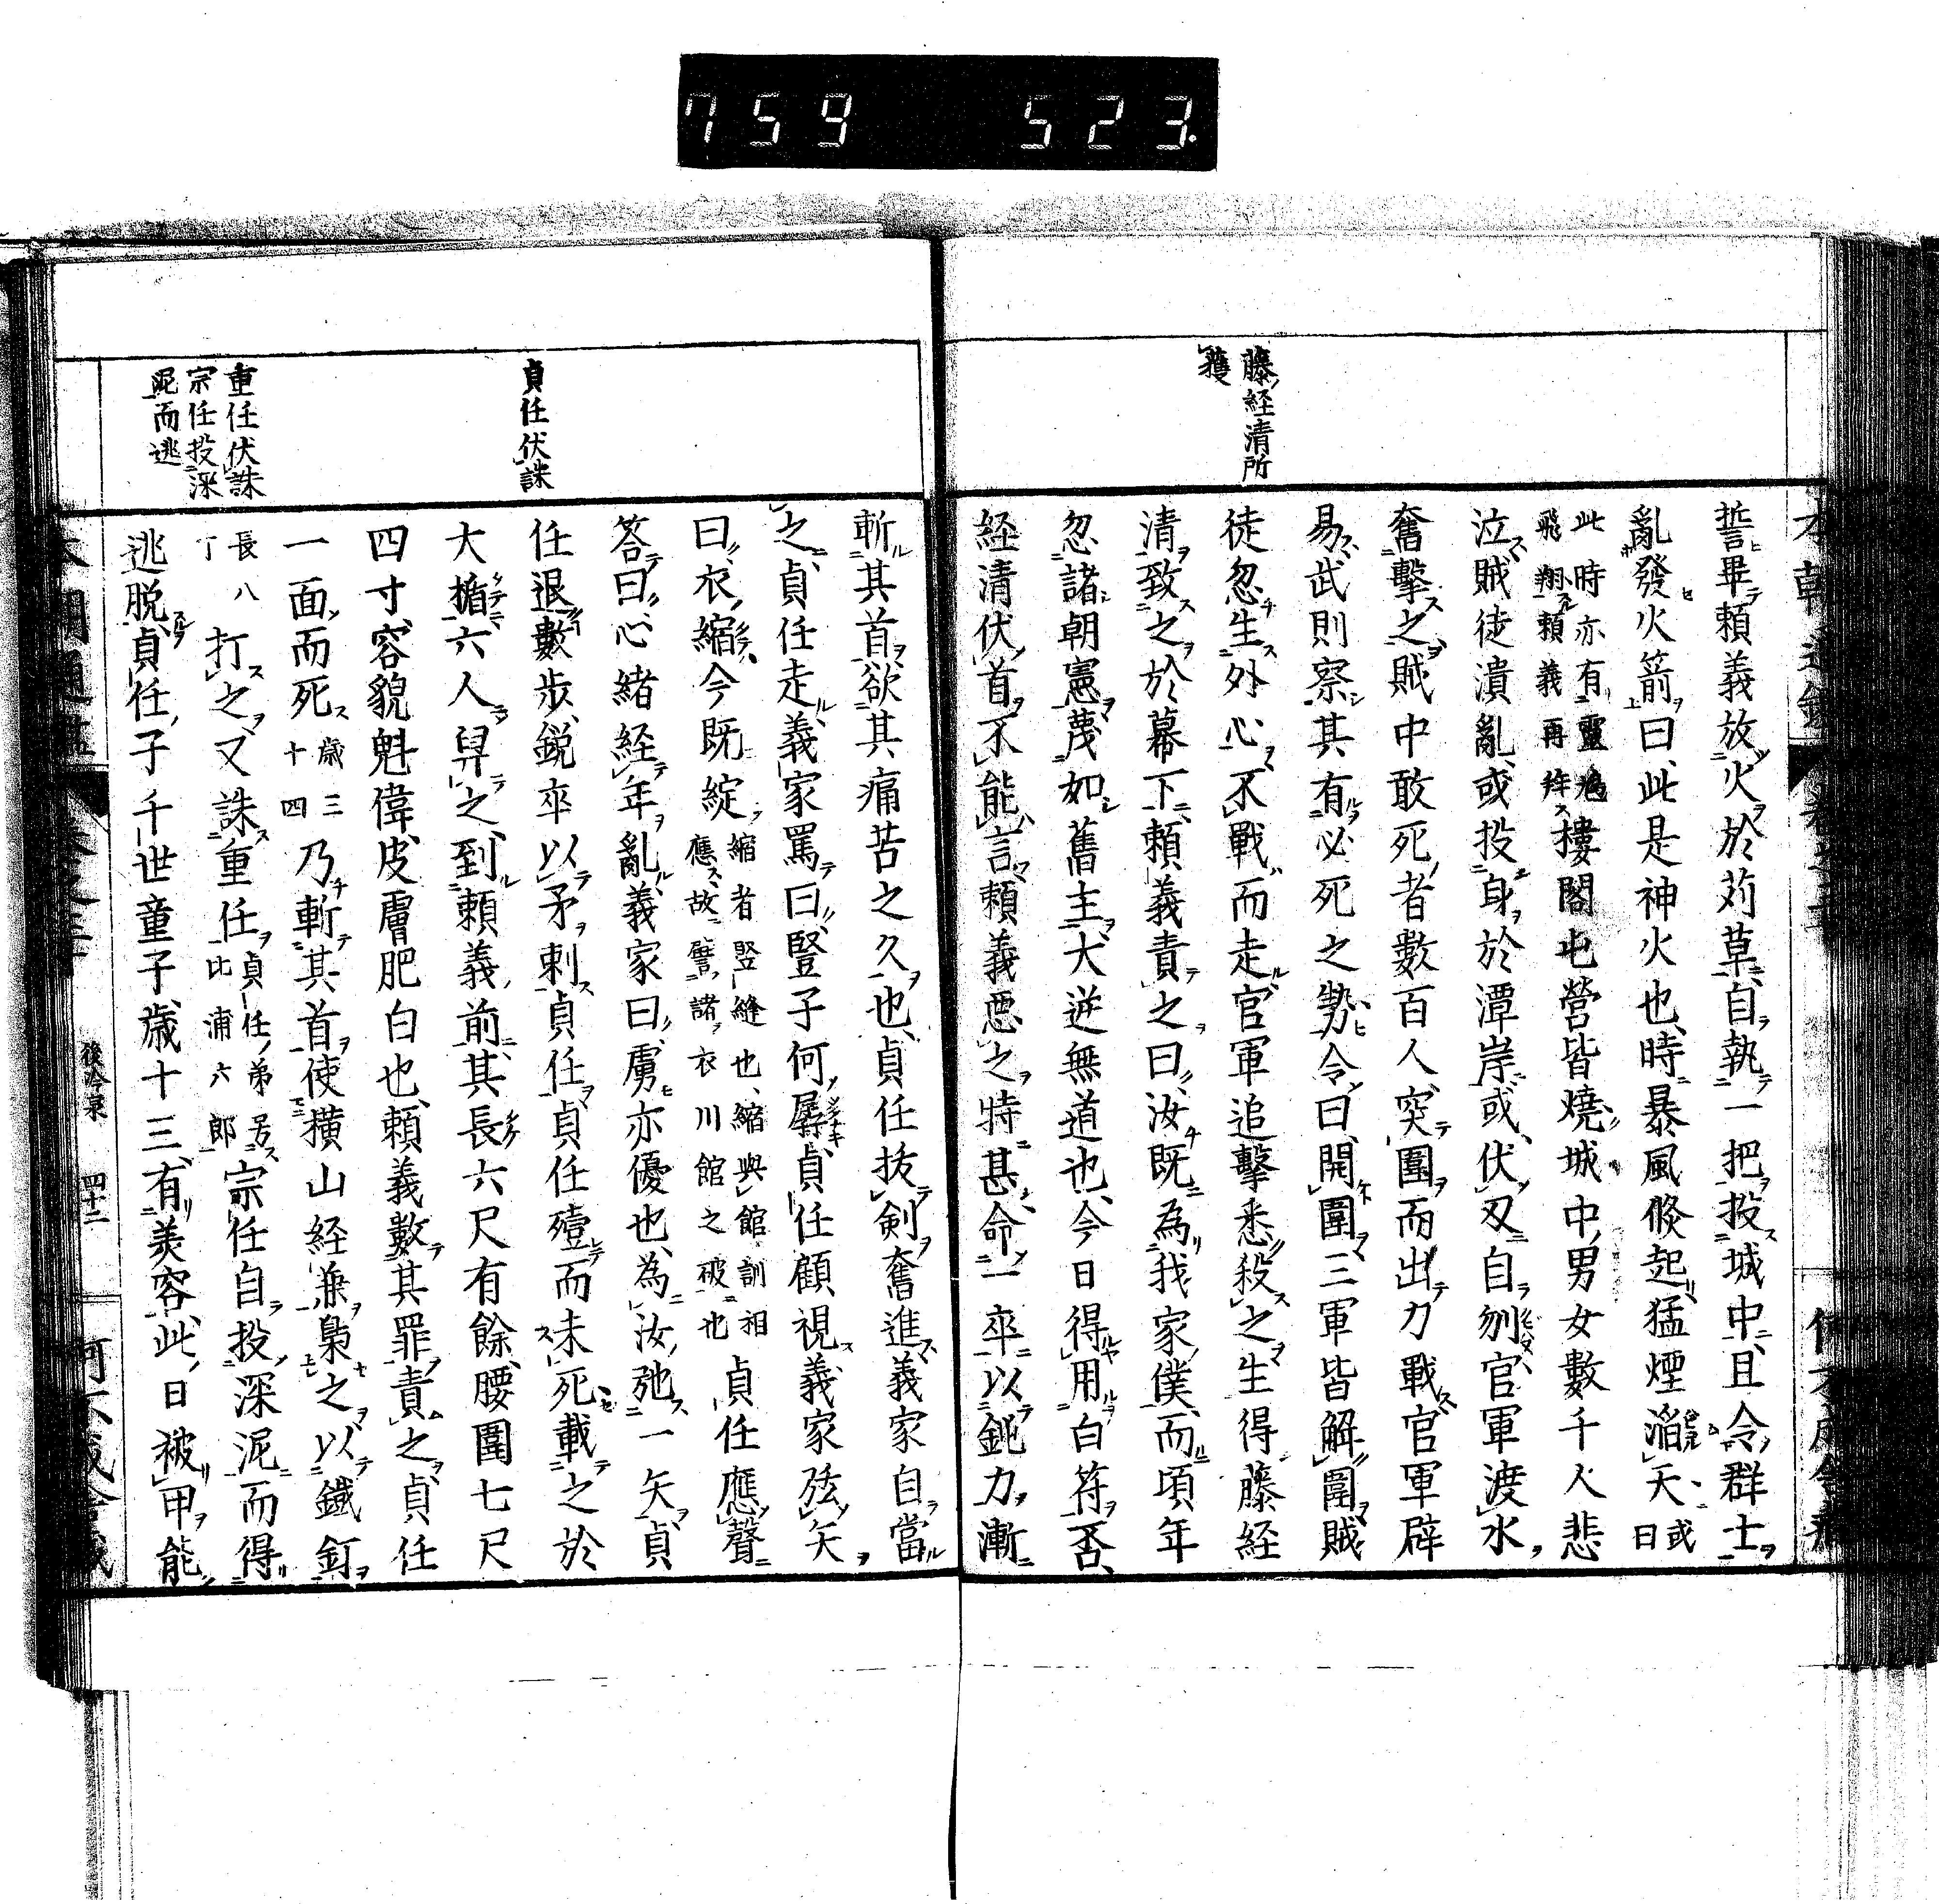 759 523.
藤経清所
獲
誓畢頼義放火於苅草自執一把投城中且令群士
亂發火箭曰此是神火也時暴風倐起猛煙滔天或曰
此時亦有靈鳩飛翔頼義再拜樓閣屯營皆燒城中男女數千人悲
泣賊徒潰亂或投身於潭岸或伏刃自刎官軍渡水
奮擊之賊中敢死者數百人突圍而出力戰官軍辟
易武則察其有必死之勢令曰開圍三軍皆解圍賊
徒忽生外心不戰而走官軍追擊悉殺之生得藤経
清致之於幕下頼義責之曰汝既為我家僕而頃年
忽諸朝憲蔑如舊主大逆無道也今日得用白符否
経清伏首不能言頼義惡之特甚命一卒以鈍刀漸
貞任伏誅
重任伏誅
宗任投深
泥而逃
斬其首欲其痛苦之久也貞任抜剣奮進義家自當
之貞任走義家罵曰豎子何孱貞任顧視義家弦矢
曰衣縮今既綻縮者竪縫也縮與館訓相應故譬諸衣川館之破也貞任應聲
答曰心緒経年亂義家曰虜亦優也為汝弛一矢貞
任退數步鋭卒以矛刺貞任貞任殪而未死載之於
大楯六人舁之到頼義前其長六尺有餘腰圍七尺
四寸容貌魁偉皮膚肥白也頼義數其罪責之貞任
一面而死歳三十四乃斬其首使横山経兼梟之以鐵釘
長八寸打之又誅重任貞任弟号比浦六郎宗任自投深泥而得
逃脱貞任子千世童子歳十三有美容此日被甲能
後冷泉 四十二